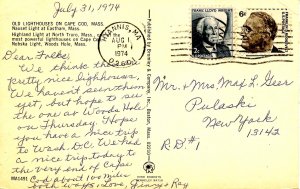 July 31, 1974
OLD LIGHTHOUSES ON CAPE COD, MASS.
Nauset Light at Eastham, Mass.
Highland Light at North Truro, Mass.,
most powerful lighthouses on Cape Cod.
Nobska Light, Woods Hole, Mass.
HYANNIS, MA
AUG
PM
1974
02601
FRANK LLOYD WRIGHT
2¢
6¢
Dear Folks,
We think these
pretty nice lighthouses,
We haven't seen them
yet, but hope to see
the one at Woods Hole
on Thursday. Hope
you have a nice trip
to Wash. D.C. We had
a nice trip today to
the very end of Cape
Cod about 100 miles
both ways. Love, Ginny & Ray
MA0491
Mr. & Mrs. Max L. Geer
Pulaski
New York
13142
R.D. #1